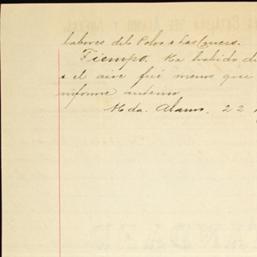 labores del Polvo a Las Cruces.
Tiempo. Ha habido
a el aire fué menos que
informe anterior.
Hda. Alamo, 22